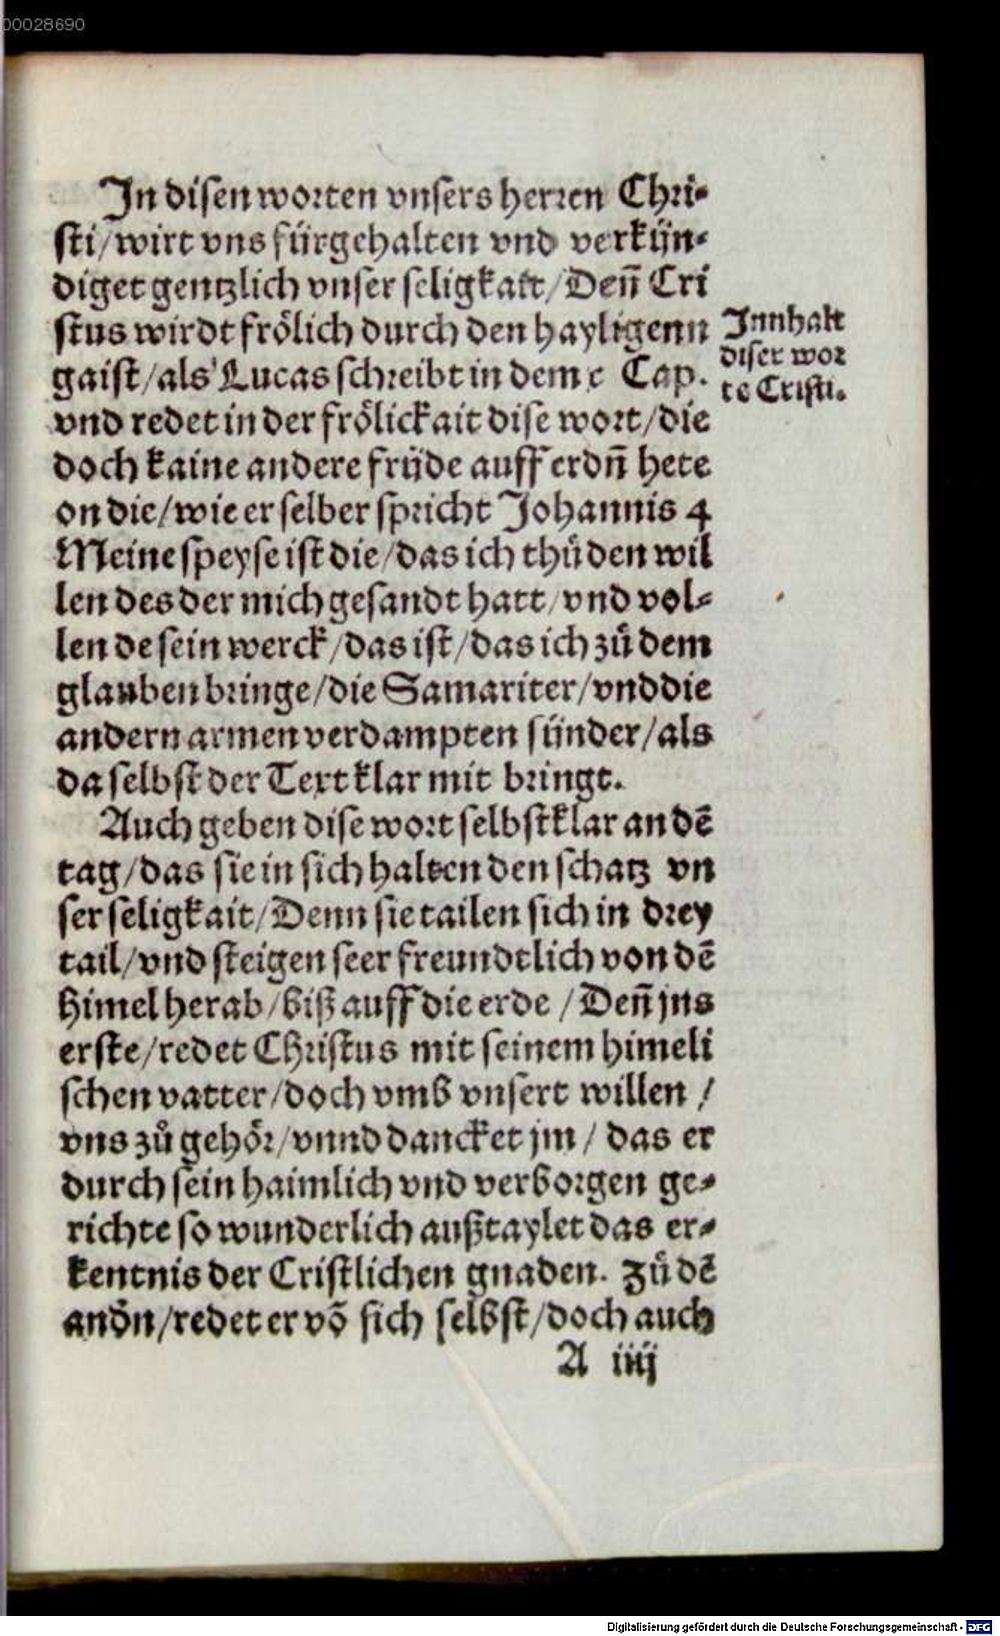 00028690
In disen worten vnsers herren Chri-
sti/wirt vns fürgehalten vnd verkün-
diget gentzlich vnser seligkait/Deñ Cri
stus wirdt frölich durch den hayligenn
gaist/als Lucas schreibt in dem x Cap.
vnd redet in der frölickait dise wort/die
doch kaine andere früde auff erdñ hete
on die/wie er selber spricht Johannis 4
Meine speyse ist die/das ich thů den wil
len des der mich gesandt hatt/vnd vol-
len de sein werck/das ist/das ich zů dem
glauben bringe/die Samariter/vnd die
andern armen verdampten sünder/als
da selbst der Text klar mit bringt.
Auch geben dise wort selbst klar an dē
tag/das sie in sich halten den schatz vn
ser seligkait/Denn sie tailen sich in drey
tail/vnd steigen seer freundtlich von dē
himel herab/biß auff die erde/Deñ jns
erste/redet Christus mit seinem himeli
schen vatter/doch vmb vnsert willen/
vns zů gehör/vnnd dancket jm/das er
durch sein haimlich vnd verborgen ge-
richte so wunderlich außtaylet das er-
kentnis der Cristlichen gnaden. Zů dē
andn̄/redet er vō sich selbst/doch auch
A iiij
Innhalt
diser wor
te Cristi.
Digitalisierung gefördert durch die Deutsche Forschungsgemeinschaft - DFG